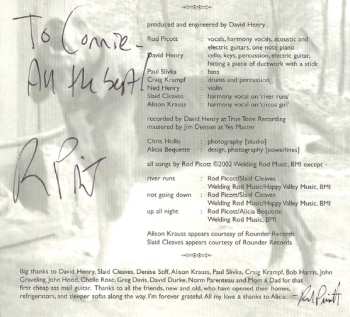 To Connie -
All the best!
produced and engineered by David Henry
Rod Picott : vocals, harmony vocals, acoustic and
electric guitars, one note piano
David Henry : cello, keys, percussion, electric guitar,
hitting a piece of ductwork with a stick
Paul Slivka : bass
Craig Krampf : drums and percussion
Ned Henry : violin
Slaid Cleaves : harmony vocal on 'river runs'
Alison Krauss : harmony vocal on 'circus girl'
recorded by David Henry at True Tone Recording
mastered by Jim Demain at Yes Master
Chris Hollo : photography [studio]
Alicia Bequette : design, photography [powerlines]
all songs by Rod Picott ©2002 Welding Rod Music, BMI except -
river runs : Rod Picott/Slaid Cleaves
Welding Rod Music/Happy Valley Music, BMI
not going down : Rod Picott/Slaid Cleaves
Welding Rod Music/Happy Valley Music, BMI
up all night : Rod Picott/Alicia Bequette
Welding Rod Music, BMI
Alison Krauss appears courtesy of Rounder Records
Slaid Cleaves appears courtesy of Rounder Records
Big thanks to David Henry, Slaid Cleaves, Denise Stiff, Alison Krauss, Paul Slivka, Craig Krampf, Bob Harris, John
Graveling, John Hood, Chelle Rose, Greg Davis, David Durke, Norm Parenteau and Mom & Dad for that
first cheap ass mail guitar. Thanks to all the friends, new and old, who have opened their homes,
refrigerators, and sleeper sofas along the way. I'm forever grateful. All my love & thanks to Alicia.